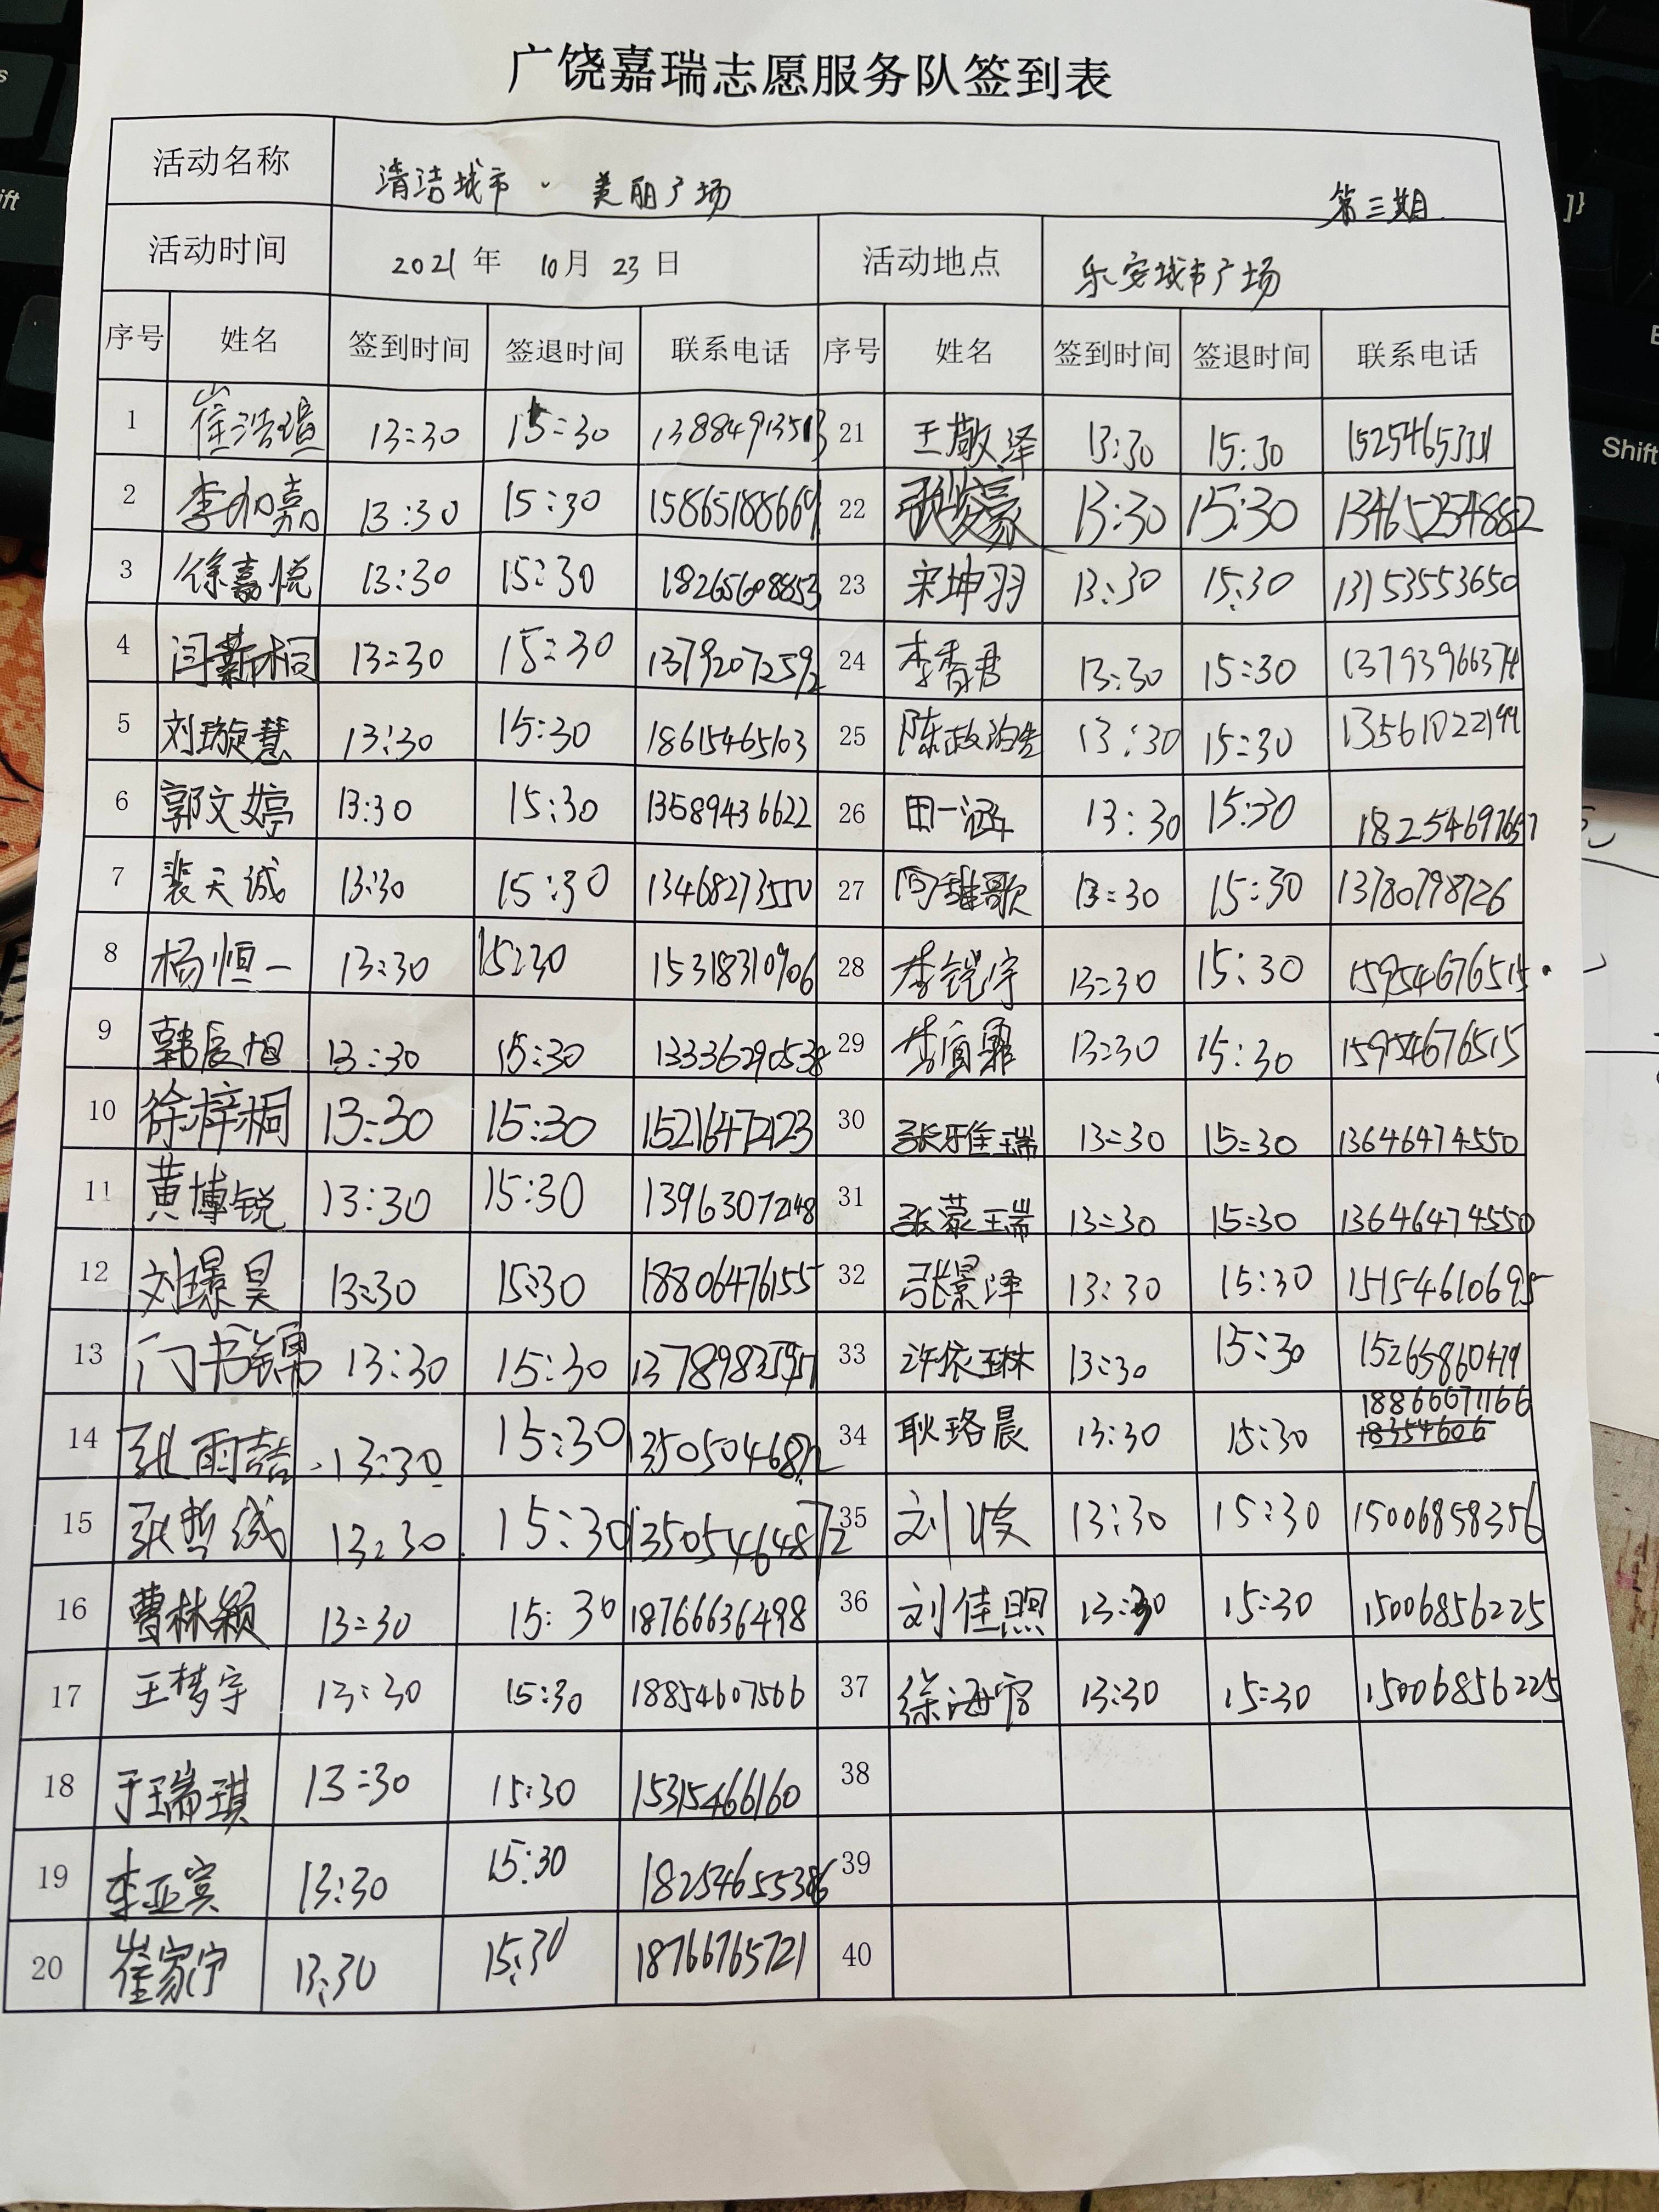 广饶嘉瑞志愿服务队签到表
活动名称 清洁城市 · 美丽广场 第三期
活动时间 2021 年 10 月 23 日 活动地点 乐安城市广场
序号 姓名 签到时间 签退时间 联系电话 序号 姓名 签到时间 签退时间 联系电话
1 崔浩瑄 13:30 15:30 13884913513 21 王敬泽 13:30 15:30
2 李加嘉 13:30 15:30 15865188669 22 13:30 15:30 13465254882
3 徐嘉悦 13:30 15:30 18265608853 23 宋坤羽 13:30 15:30 13153553650
4 闫薪桐 13:30 15:30 13792072592 24 李香君 13:30 15:30
5 刘璇慧 13:30 15:30 18615465103 25 13:30 15:30 13561022199
6 郭文婷 13:30 15:30 13589436622 26 田一涵 13:30 15:30 18254697657
7 裴天诚 13:30 15:30 13468273550 27 13:30 15:30 13780798726
8 杨恒一 13:30 15:30 15318310906 28 李锐宇 13:30 15:30 15954676515
9 韩辰旭 13:30 15:30 13336290538 29 李宜霏 13:30 15:30 15954676515
10 徐梓桐 13:30 15:30 15216472123 30 张雅瑞 13:30 15:30 13646474550
11 黄博锐 13:30 15:30 13963072148 31 张蒙瑞 13:30 15:30 13646474550
12 刘璟昊 13:30 15:30 18806476155 32 张景泽 13:30 15:30 15154610695
13 门书锦 13:30 15:30 33 许依琳 13:30 15:30 15265860419
14 张雨喆 13:30 15:30 34 耿珞晨 13:30 15:30 18866671166
15 张哲诚 13:30 15:30 13505464872 35 刘波 13:30 15:30 15006858356
16 曹林颖 13:30 15:30 18766636498 36 刘佳煦 13:30 15:30 15006856225
17 王梦宇 13:30 15:30 18854607566 37 徐海宫 13:30 15:30 15006856225
18 于瑞琪 13:30 15:30 15315466160 38
19 李亚宾 13:30 15:30 18254655386 39
20 崔家宁 13:30 15:30 18766765721 40